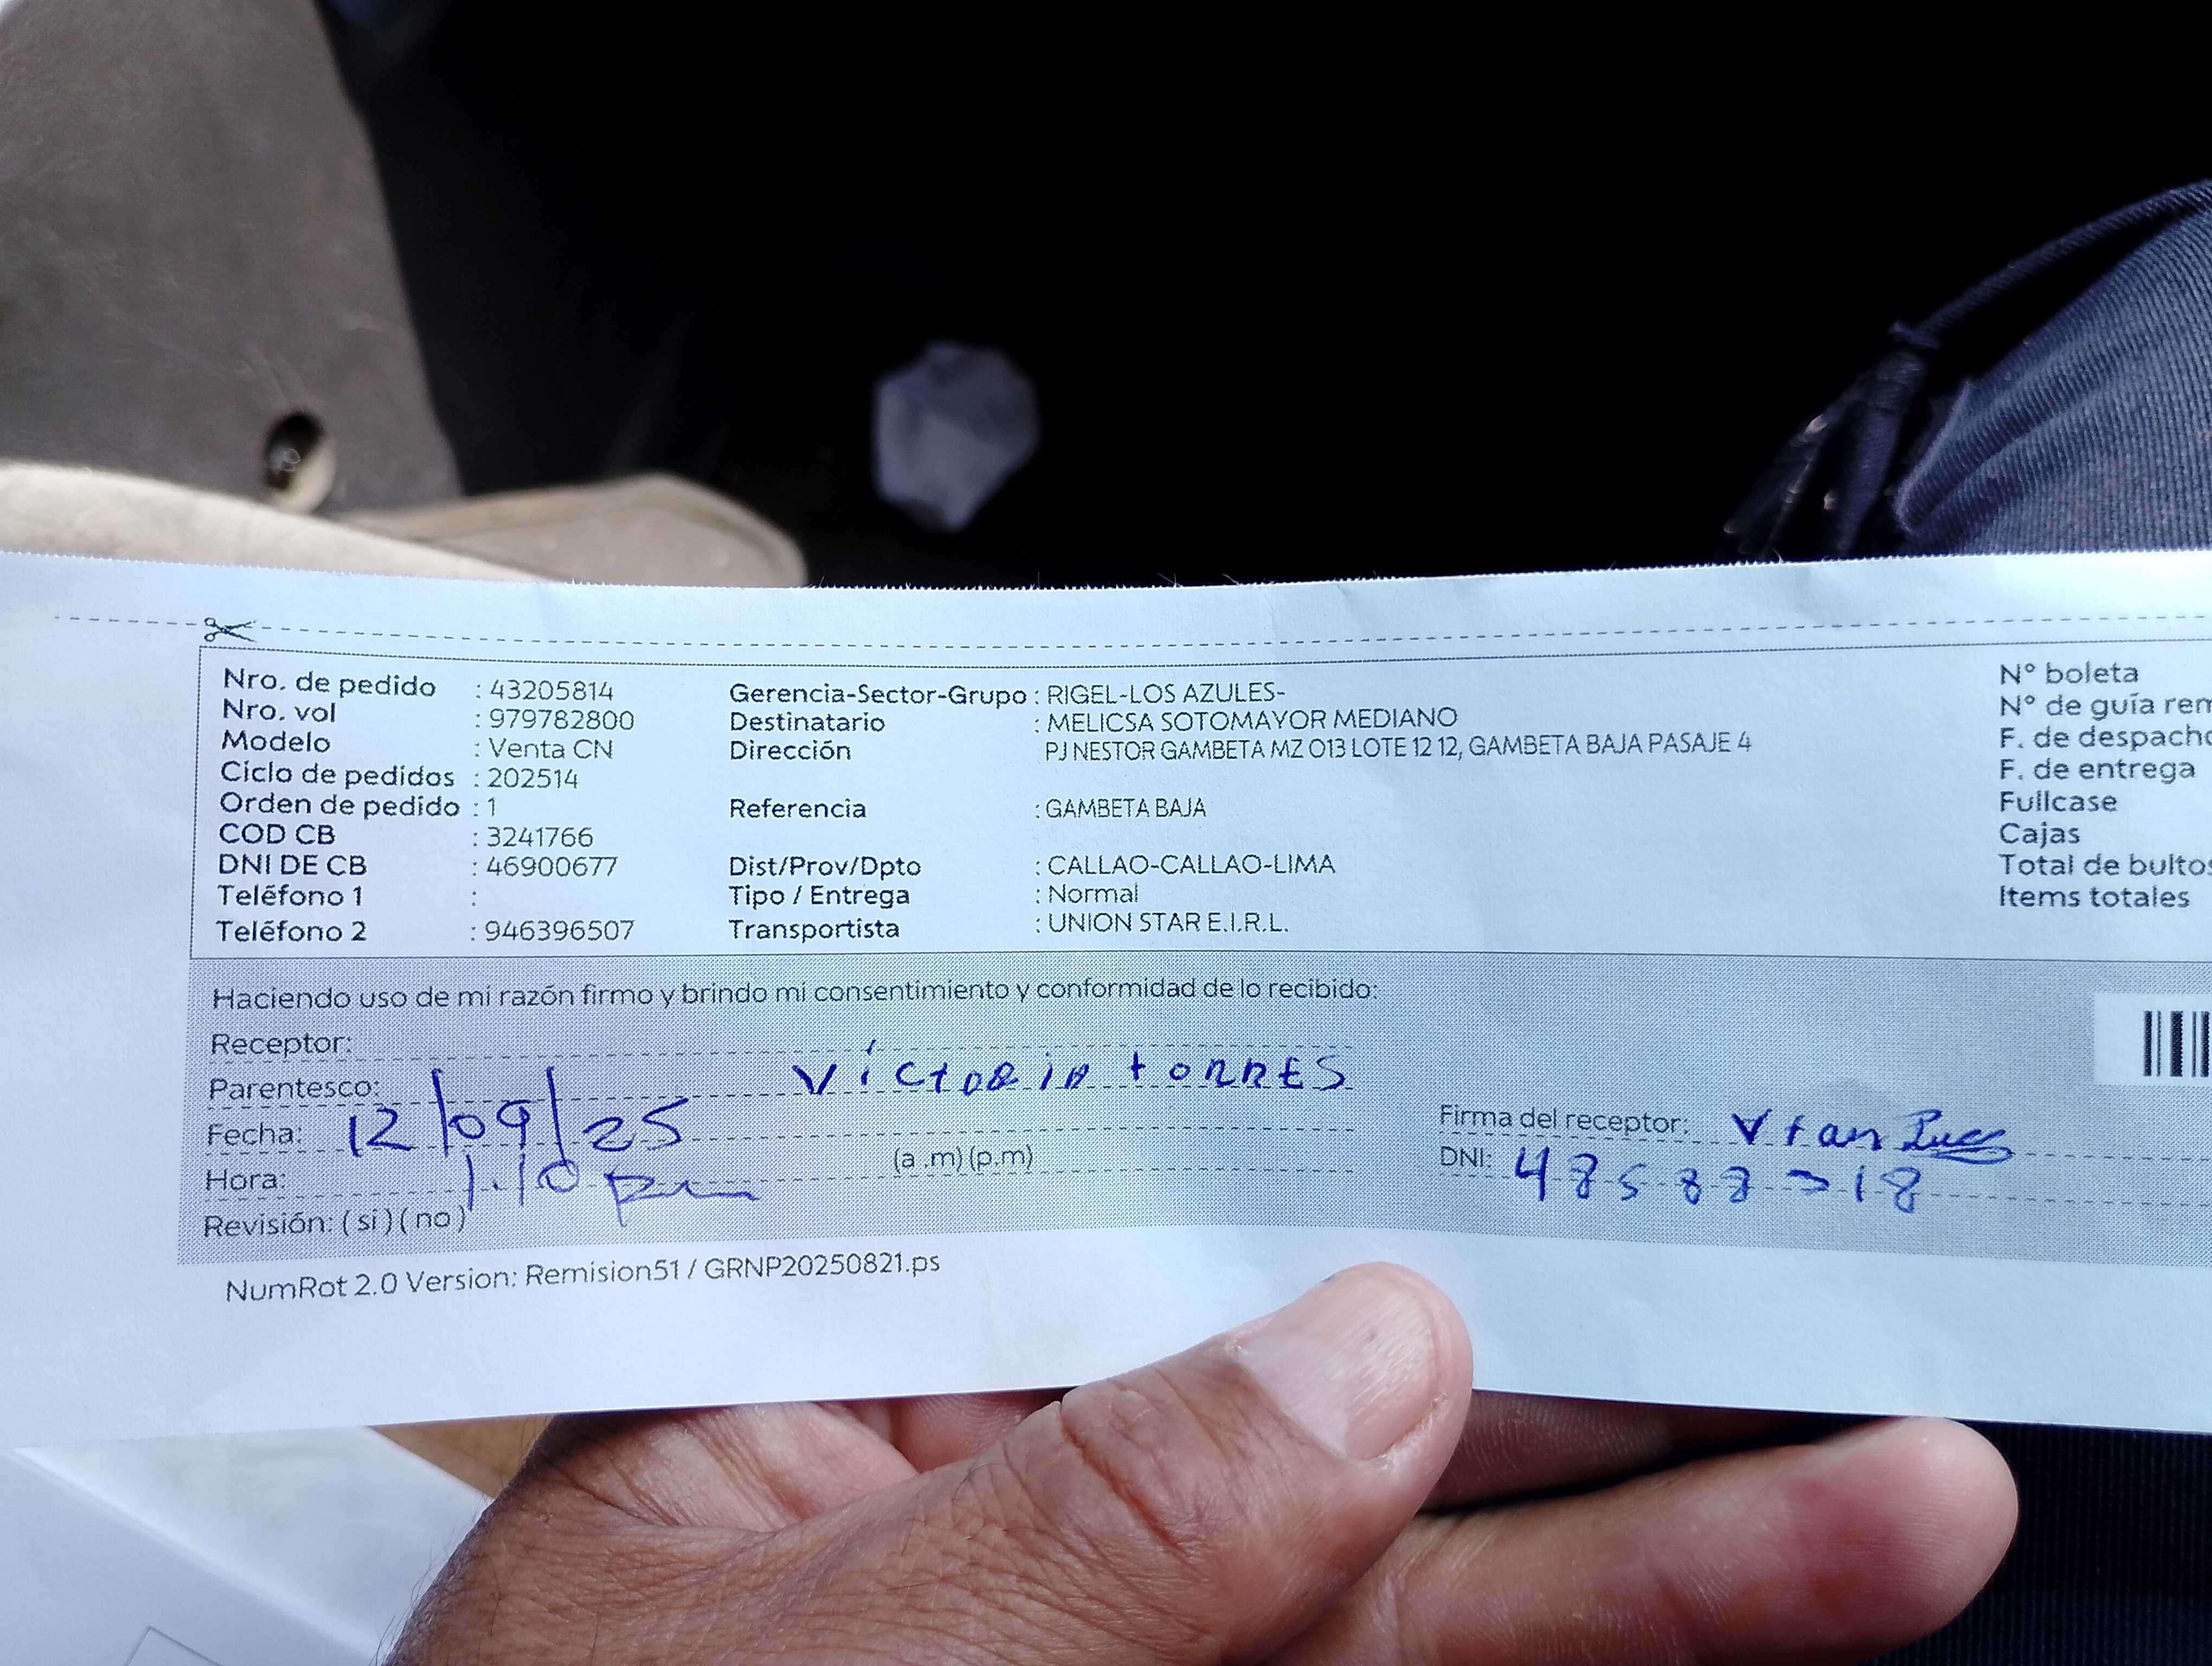 Nro. de pedido : 43205814
Nro. vol : 979782800
Modelo : Venta CN
Ciclo de pedidos : 202514
Orden de pedido : 1
COD CB : 3241766
DNI DE CB : 46900677
Teléfono 1 :
Teléfono 2 : 946396507
Gerencia-Sector-Grupo : RIGEL-LOS AZULES-
Destinatario : MELICSA SOTOMAYOR MEDIANO
Dirección PJ NESTOR GAMBETA MZ O13 LOTE 12 12, GAMBETA BAJA PASAJE 4
Referencia : GAMBETA BAJA
Dist/Prov/Dpto : CALLAO-CALLAO-LIMA
Tipo / Entrega : Normal
Transportista : UNION STAR E.I.R.L.
N° boleta
N° de guía rem
F. de despacho
F. de entrega
Fullcase
Cajas
Total de bultos
Items totales
Haciendo uso de mi razón firmo y brindo mi consentimiento y conformidad de lo recibido:
Receptor:
Parentesco: VíCTORIA tORRES
Fecha: 12/09/25
Hora: 1:10 pm (a .m) (p.m)
Revisión: ( si ) ( no )
Firma del receptor:
DNI:
NumRot 2.0 Version: Remision51 / GRNP20250821.ps